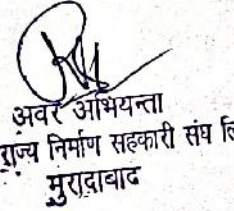 अवर अभियन्ता
राज्य निर्माण सहकारी संघ लि
मुरादाबाद